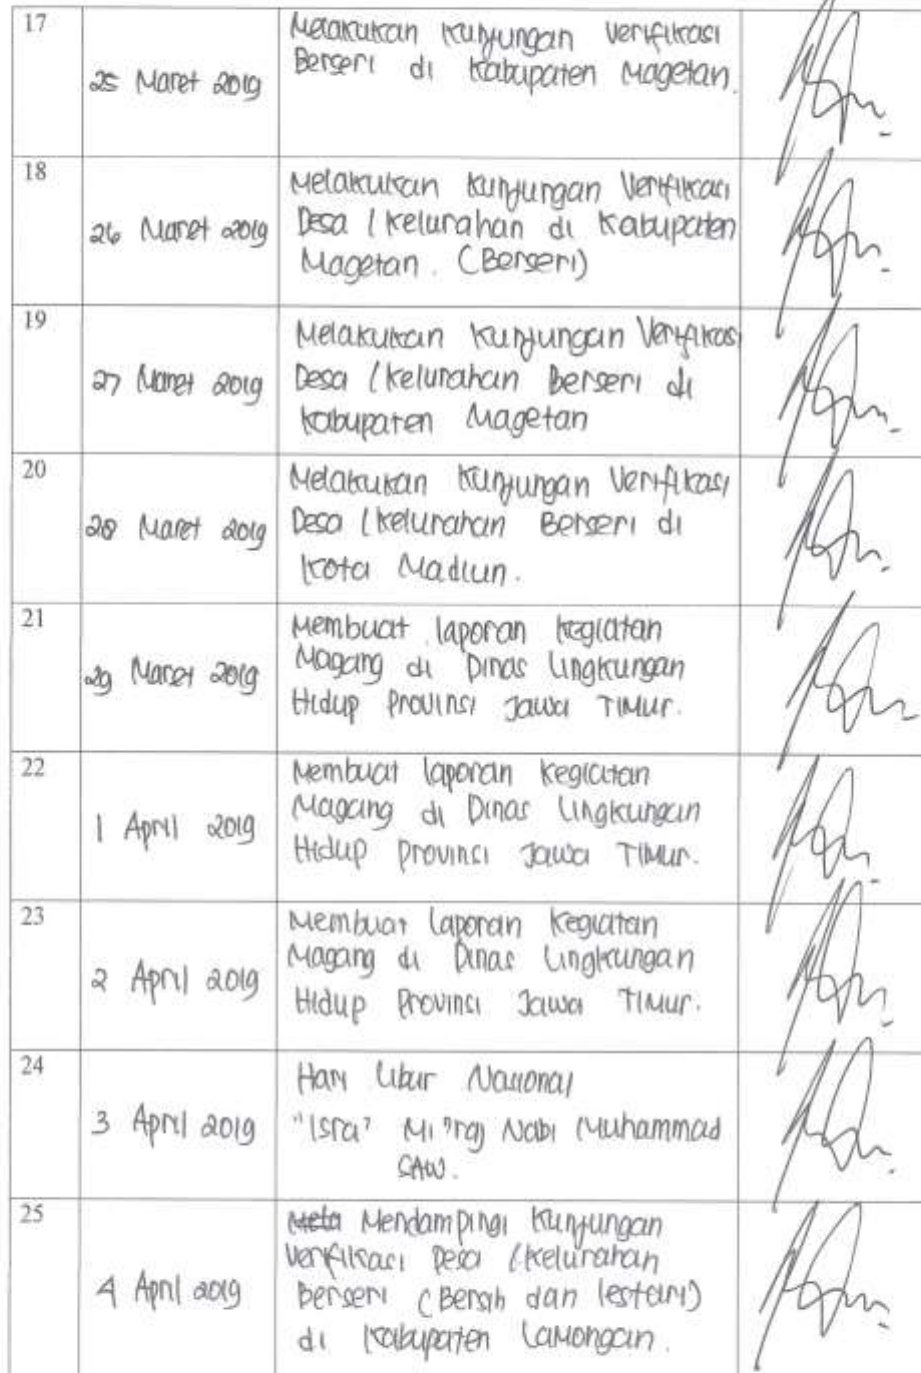 17
25 Maret 2019
Melakukan Kunjungan Verifikasi
Berseri di Kabupaten Magetan.
18
26 Maret 2019
Melakukan Kunjungan Verifikasi
Desa / Kelurahan di Kabupaten
Magetan. (Berseri)
19
27 Maret 2019
Melakukan Kunjungan Verifikasi
Desa / Kelurahan Berseri di
Kabupaten Magetan
20
28 Maret 2019
Melakukan Kunjungan Verifikasi
Desa / Kelurahan Berseri di
Kota Madiun.
21
29 Maret 2019
Membuat laporan kegiatan
Magang di Dinas Lingkungan
Hidup Provinsi Jawa Timur.
22
1 April 2019
Membuat laporan kegiatan
Magang di Dinas Lingkungan
Hidup Provinsi Jawa Timur.
23
2 April 2019
Membuat laporan kegiatan
Magang di Dinas Lingkungan
Hidup Provinsi Jawa Timur.
24
3 April 2019
Hari Libur Nasional
"Isra' Mi'raj Nabi Muhammad
SAW.
25
4 April 2019
Mela Mendampingi Kunjungan
Verifikasi Desa / Kelurahan
Berseri (Bersih dan lestari)
di Kabupaten Lamongan.